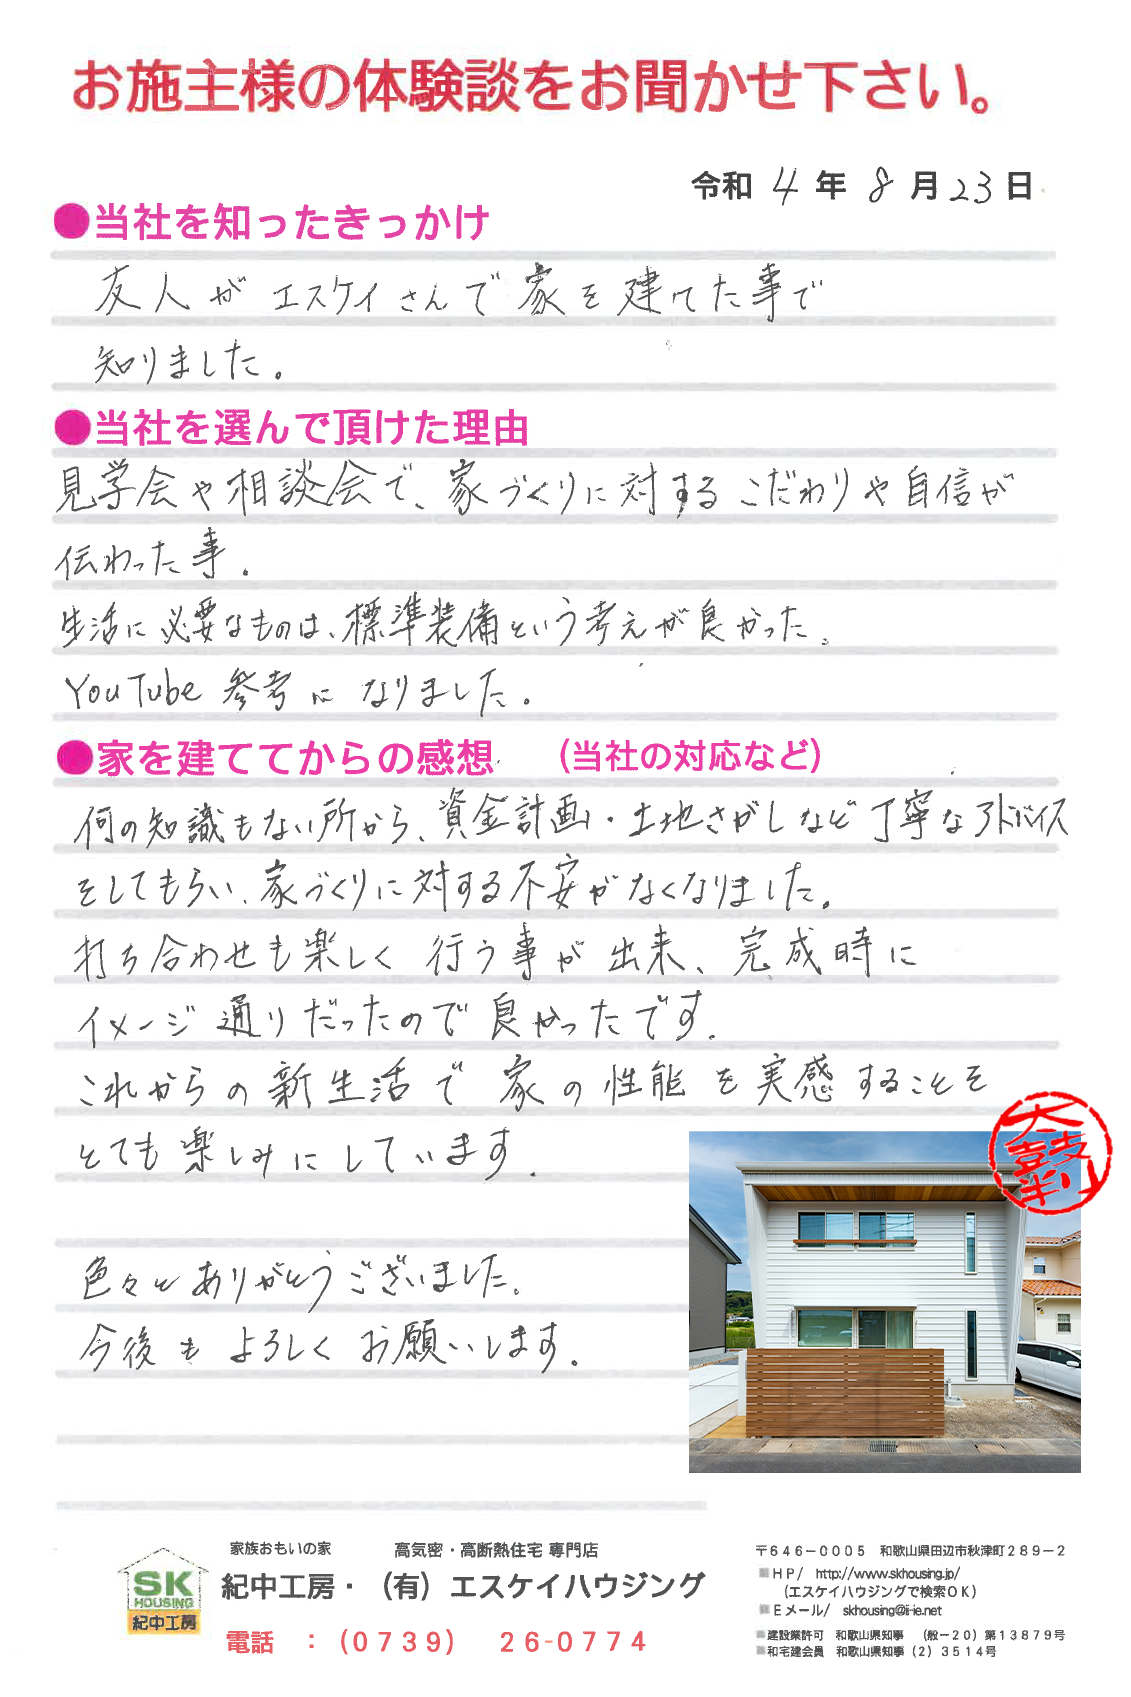 お施主様の体験談をお聞かせ下さい。
令和 4 年 8 月 23 日
●当社を知ったきっかけ
友人が エスケイさんで 家を建てた事で
知りました。
●当社を選んで頂けた理由
見学会や相談会で、家づくりに対するこだわりや自信が
伝わった事.
生活に必要なものは、標準装備という考えが良かった。
YouTube 参考に なりました。
●家を建ててからの感想 （当社の対応など）
何の知識もない所から、資金計画・土地さがしなど丁寧なアドバイス
をしてもらい、家づくりに対する不安がなくなりました。
打ち合わせも楽しく 行う事が 出来、完成時に
イメージ通りだったので良かったです.
これからの新生活で 家の性能を実感することを
とても楽しみにしています.
大鼓判
色々とありがとうございました。
今後も よろしく お願いします。
家族おもいの家 高気密・高断熱住宅 専門店
SK
HOUSING
紀中工房
紀中工房・（有）エスケイハウジング
電話 ：（０７３９） ２６-０７７４
〒６４６－０００５ 和歌山県田辺市秋津町２８９－２
ＨＰ/ http://www.skhousing.jp/
（エスケイハウジングで検索ＯＫ）
Ｅメール/ skhousing@ii-ie.net
建設業許可 和歌山県知事 （般－２０）第１３８７９号
和宅建会員 和歌山県知事（２）３５１４号